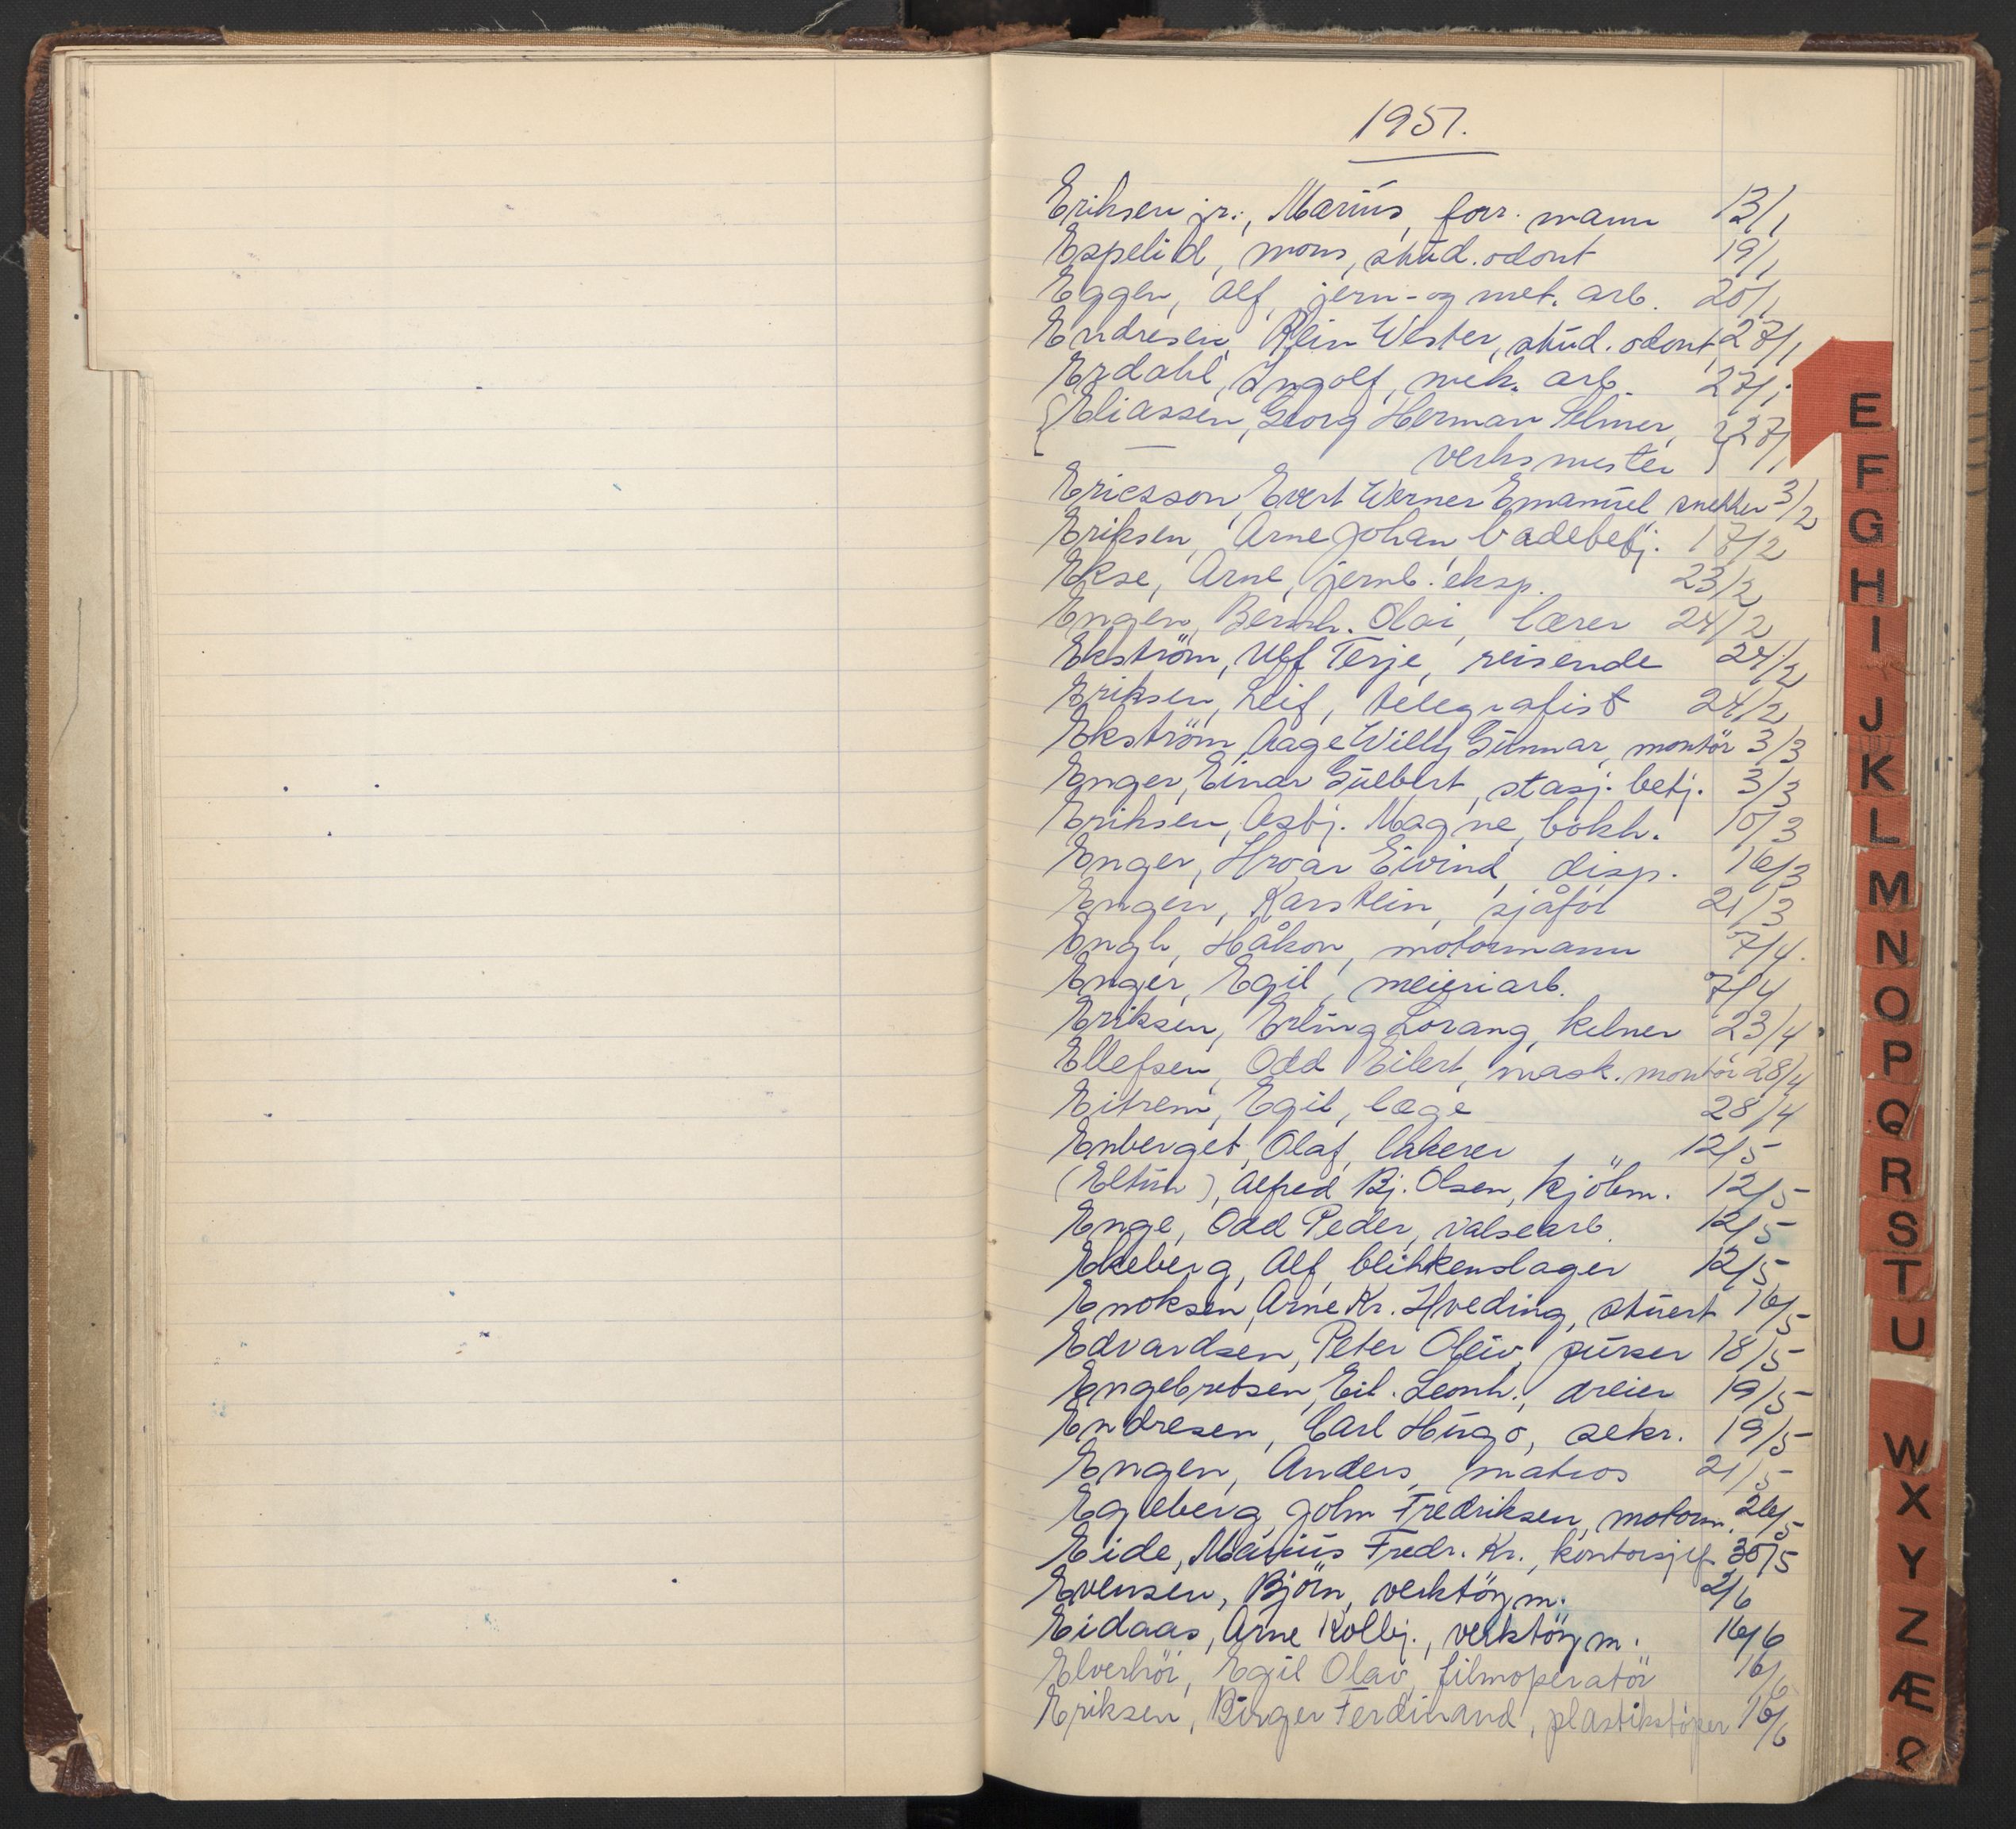 1951.
Eriksen jr., Marius, forr. mann 13/1
Espelid, mons, stud. odont 19/1
Eggen, Alf, jern- og met. arb. 20/1
Endresen, Rein Wester, stud. odont 27/1
Erdahl, Ingolf, mek. arb. 27/1
{Eliassen, Georg Herman Selmer, 27/1
— verksmester
Ericsson, Evert Werner Emanuel, snekker 3/2
Eriksen, Arne Johan, badebetj. 17/2
Ekse, Arne, jernb. eksp. 23/2
Engen, Bernh. Olai, lærer 24/2
Ekström, Ulf Terje, reisende 24/2
Eriksen, Leif, telegrafist 24/2
Ekström, Aage Willy Gunnar, montör 3/3
Enger, Einar Gulbert, stasj. betj. 3/3
Eriksen, Asbj. Magne, bokh. 10/3
Enger, Hroar Eivind, disp. 16/3
Engen, Karstein, sjåför 21/3
Engh, Håkon, motormann 7/4.
Enger, Egil, meieriarb. 7/4
Eriksen, Erling Lorang, kelner 23/4
Ellefsen, Odd Eilert, mask. montör 28/4
Eitrem, Egil, læge 28/4
Enberget, Olaf, lakerer 12/5
(Eltun), Alfred Bj. Olsen, kjölm. 12/5
Enge, Odd Peder, valsearb. 12/5
Ekeberg, Alf, blikkenslager 12/5
Enoksen, Arne Kr. Hveding, stuert 16/5
Edvardsen, Peter Oleiv, purser 18/5
Engebretsen, Eil. Leonh., dreier 19/5
Endresen, Carl Hugo, sekr. 19/5
Engen, Anders, matros 21/5
Egleberg, John Fredriksen, motorm. 26/5
Eide, Marius Fredr. Kr., kontorsjef 30/5
Evensen, Björn, verktöym. 2/6
Eidaas, Arne Kolbj., verktöym. 16/6
Elverhöi, Egil Olav, filmoperatör 16/6
Eriksen, Birger Ferdinand, plastikstöper 16/6
E
F
G
H
I
J
K
L
M
N
O
P
Q
R
S
T
U
W
X
Y
Z
Æ